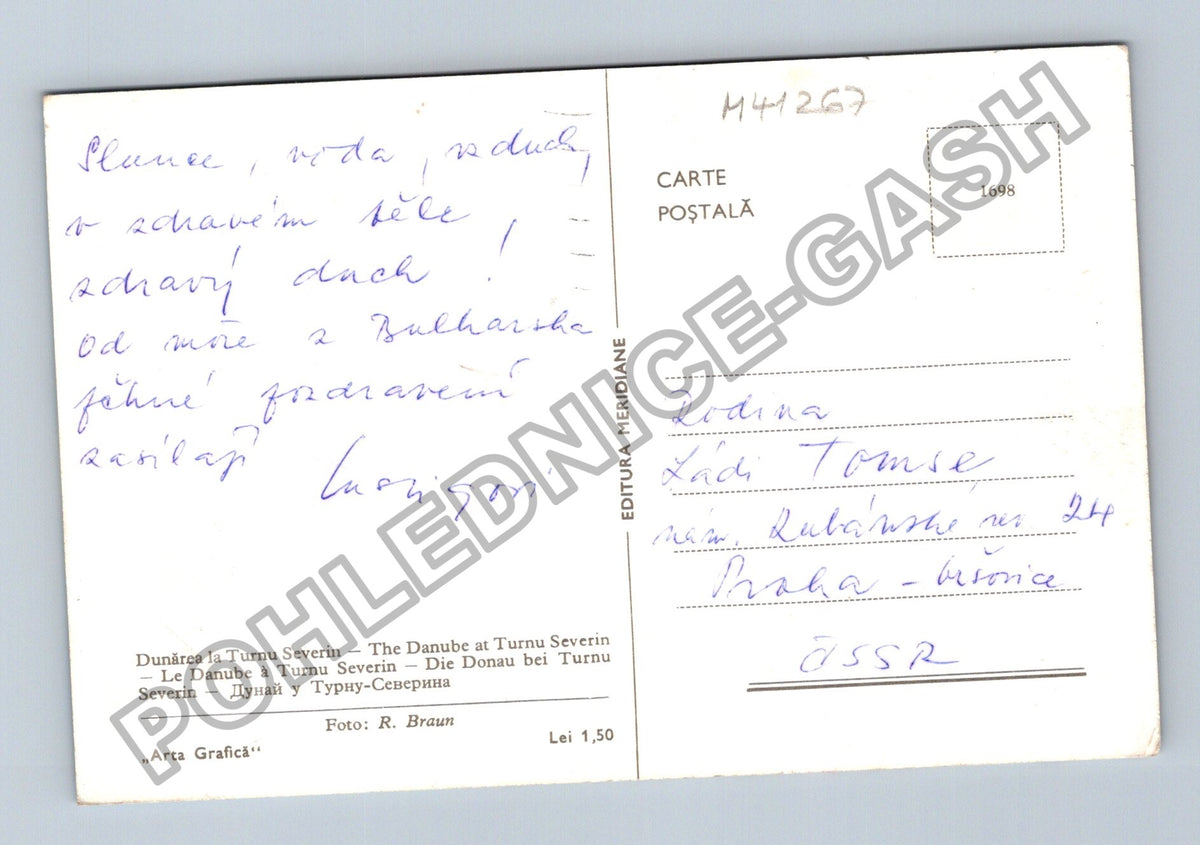 Slunce, voda, vzduch,
v zdravém těle,
zdravý duch!
Od moře z Bulharska
pěkné pozdravení
zasílají
M41267
CARTE
POȘTALĂ
1698
EDITURA MERIDIANE
Rodina
Ládi Tomse
nám. Kubánské rev. 24
Praha – Vršovice
ČSSR
Dunărea la Turnu Severin — The Danube at Turnu Severin
— Le Danube à Turnu Severin — Die Donau bei Turnu
Severin — Дунай у Турну-Северина
Foto: R. Braun
„Arta Grafică“
Lei 1,50
POHLEDNICE-GASH